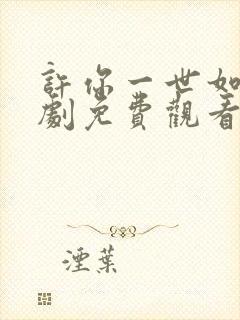 許你一世如
劇免費觀看
湮葉